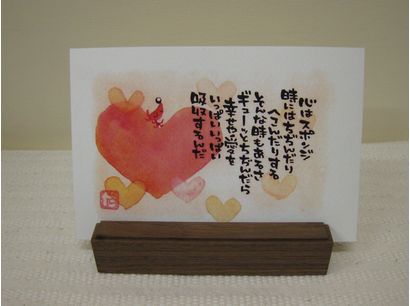 心はスポンジ
時にはちぢんだり
へこんだりする
そんな時もあるさ
ギューッとちぢんだら
幸せや愛を
いっぱいいっぱい
吸収するんだ